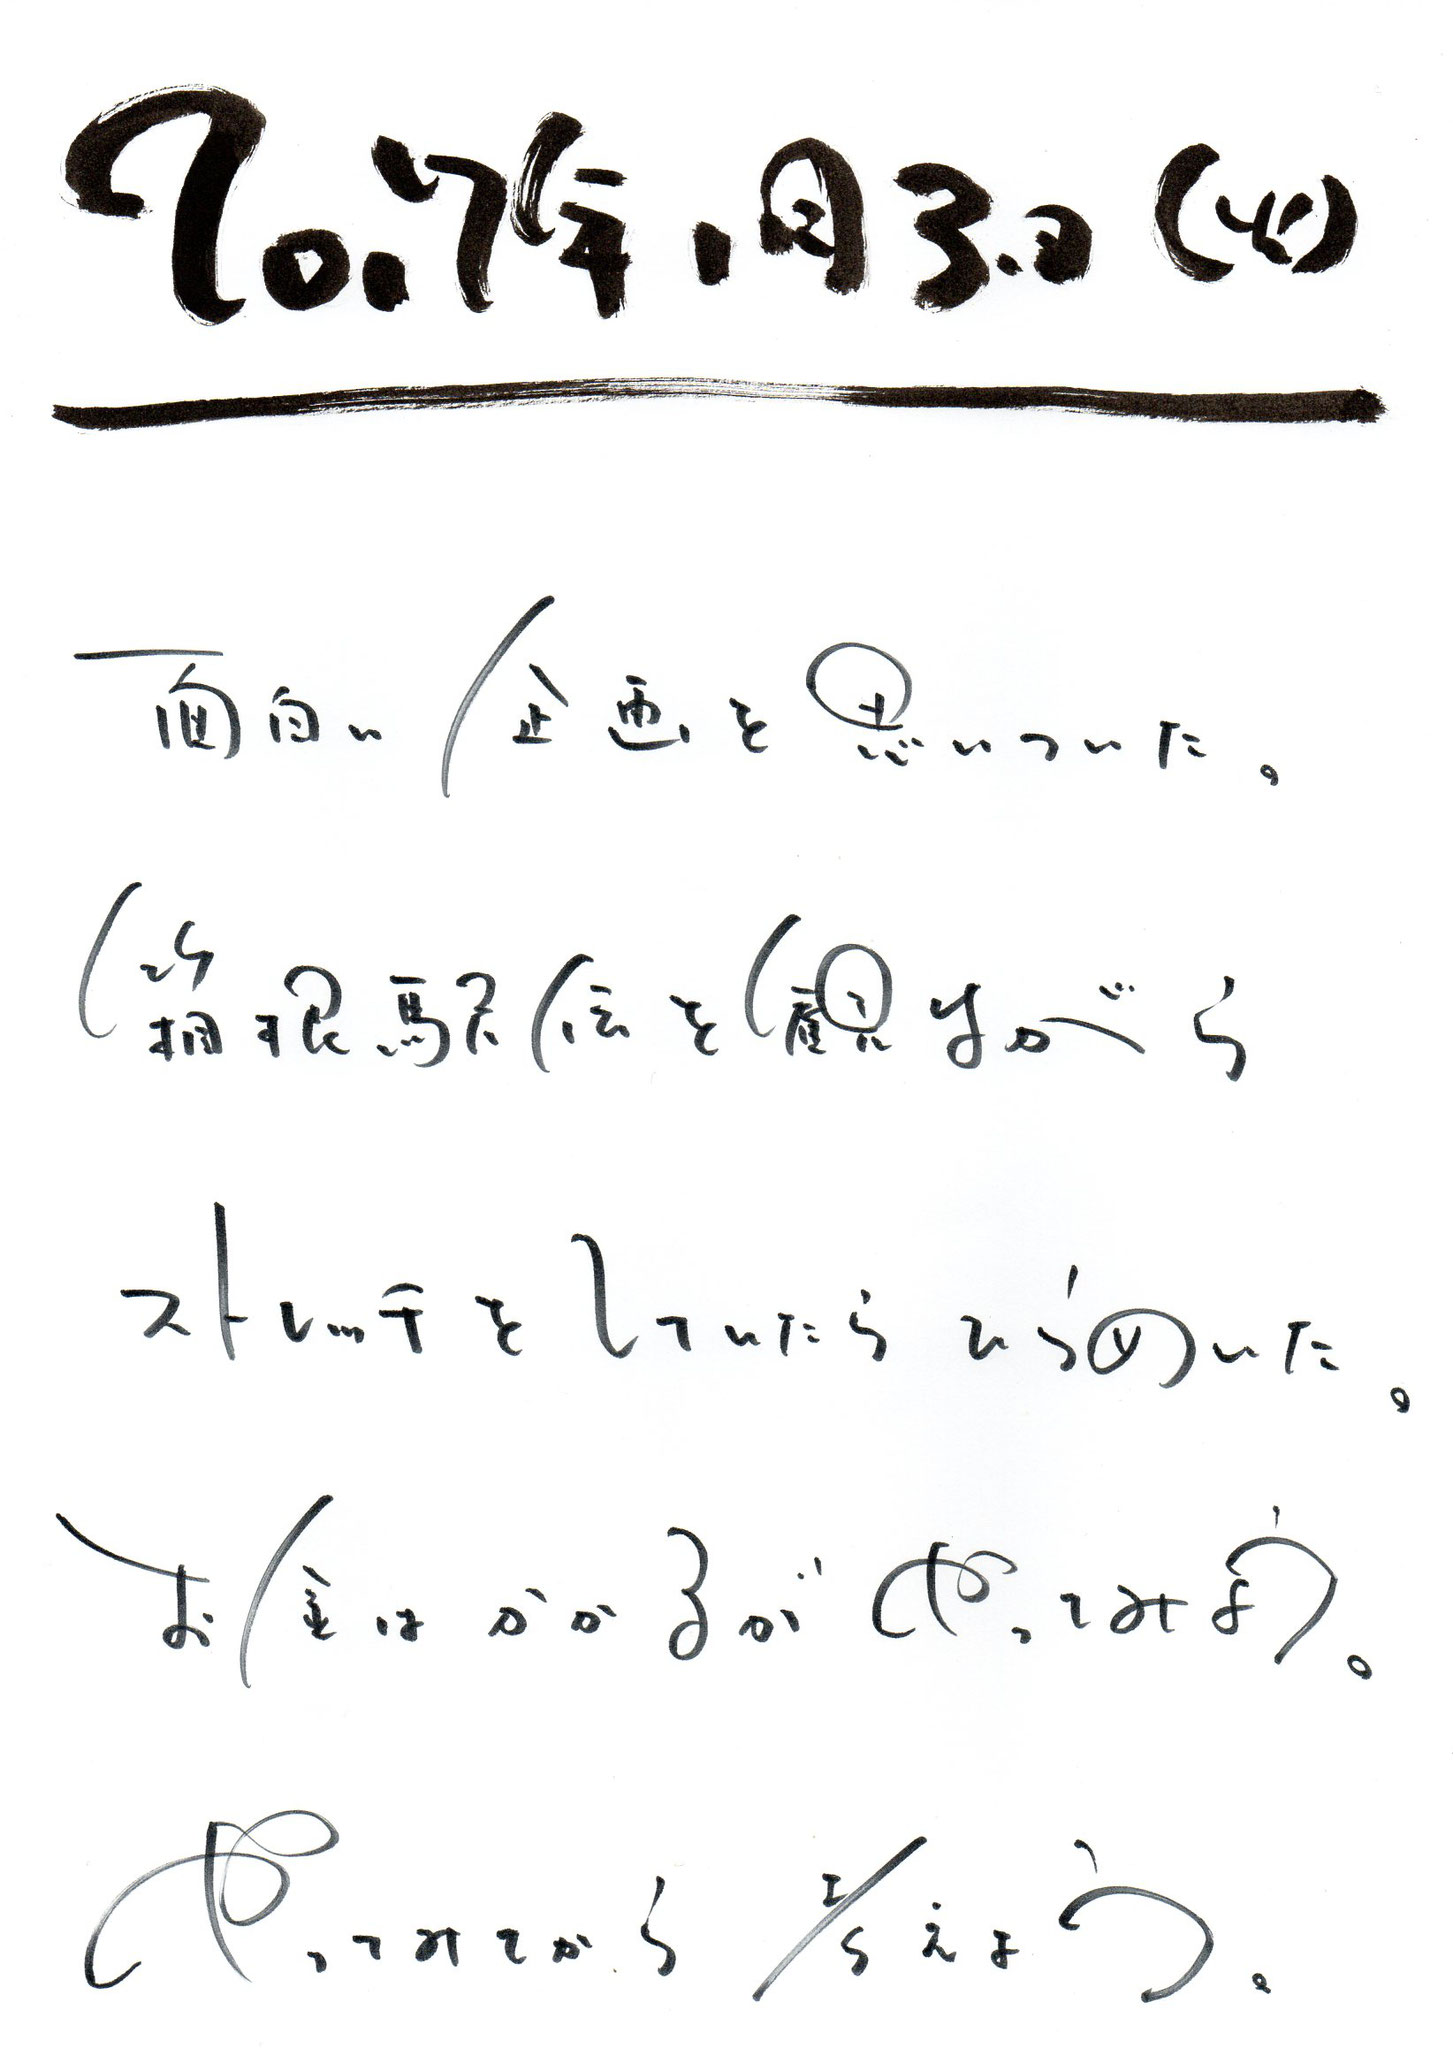 2017年1月3日(火)
面白い企画を思いついた。
箱根駅伝を観ながら
ストレッチをしていたらひらめいた。
お金はかかるがやってみよう。
やってみてから考えよう。